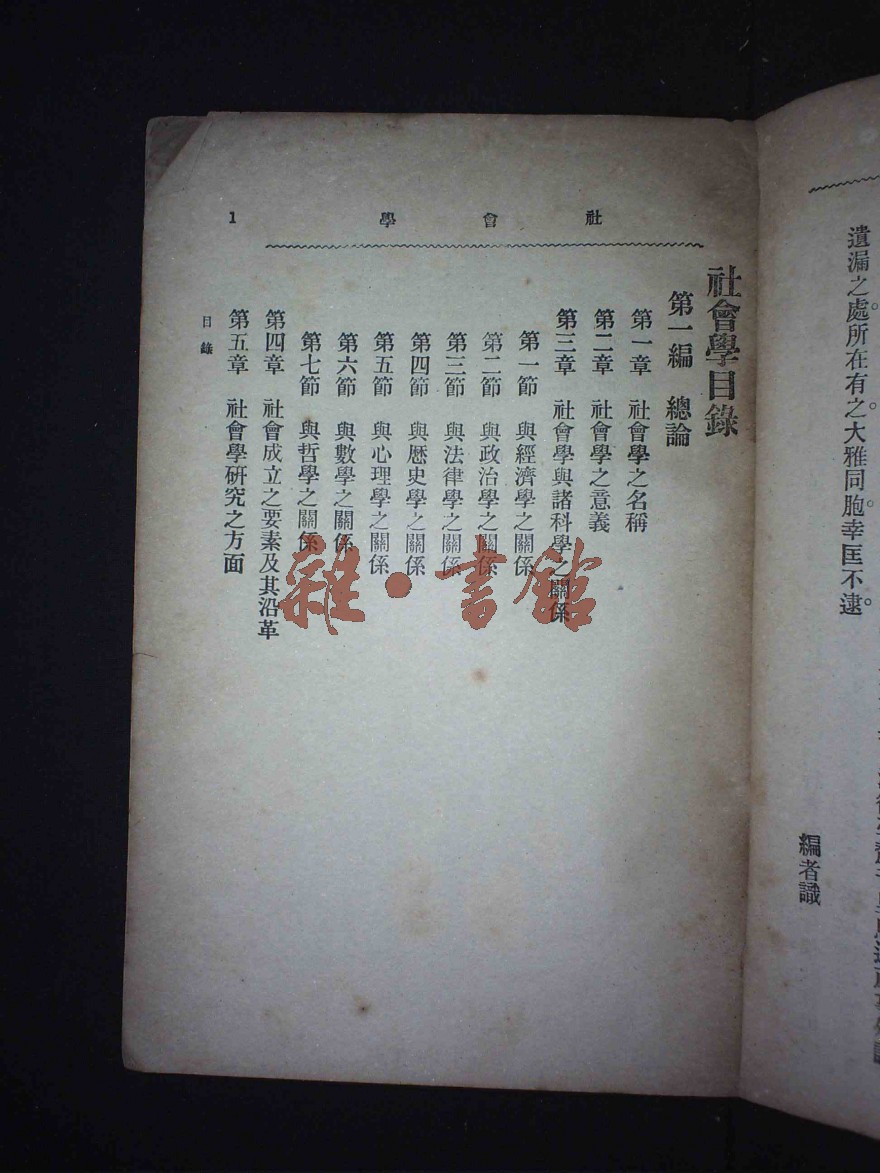 遺漏之處。所在有之。大雅同胞。幸匡不逮。
編者識
社會學
1
社會學目錄
第一編 總論
第一章 社會學之名稱
第二章 社會學之意義
第三章 社會學與諸科學之關係
第一節 與經濟學之關係
第二節 與政治學之關係
第三節 與法律學之關係
第四節 與歷史學之關係
第五節 與心理學之關係
第六節 與數學之關係
第七節 與哲學之關係
第四章 社會成立之要素及其沿革
第五章 社會學研究之方面
目錄
雜·書館